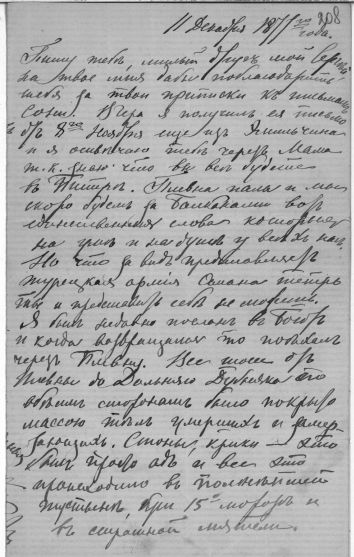 208
11 Декабря 1877 го года.
Пишу тебѣ, милый другъ мой Сергѣй,
на твое имя дабы поблагодарить
тебя за твои приписки къ письмамъ
Сони. Вчера я получилъ ея письмо
отъ 8го Ноября еще изъ
и я отвѣчаю тебѣ черезъ Мама
т. к. знаю что вы всѣ будете
въ Питерѣ. Плевна пала и мы
скоро будемъ за Балканами вотъ
слова которые
на умѣ и на душѣ у всѣхъ насъ.
Но что за видъ представляетъ
турецкая армія Османа теперь
ты и представить себѣ не можешь.
Я былъ недавно посланъ въ Боготъ
и когда возвращался то поѣхалъ
черезъ Плевну. Все шоссе отъ
Плевны до Дольняго Дубняка по
обѣимъ сторонамъ было покрыто
массою тѣлъ умершихъ и замер-
зающихъ. Стоны, крики — это
былъ просто адъ и все это
происходило въ полнѣйшей
пустынѣ, при 15° мороза и
въ страшной мятели.